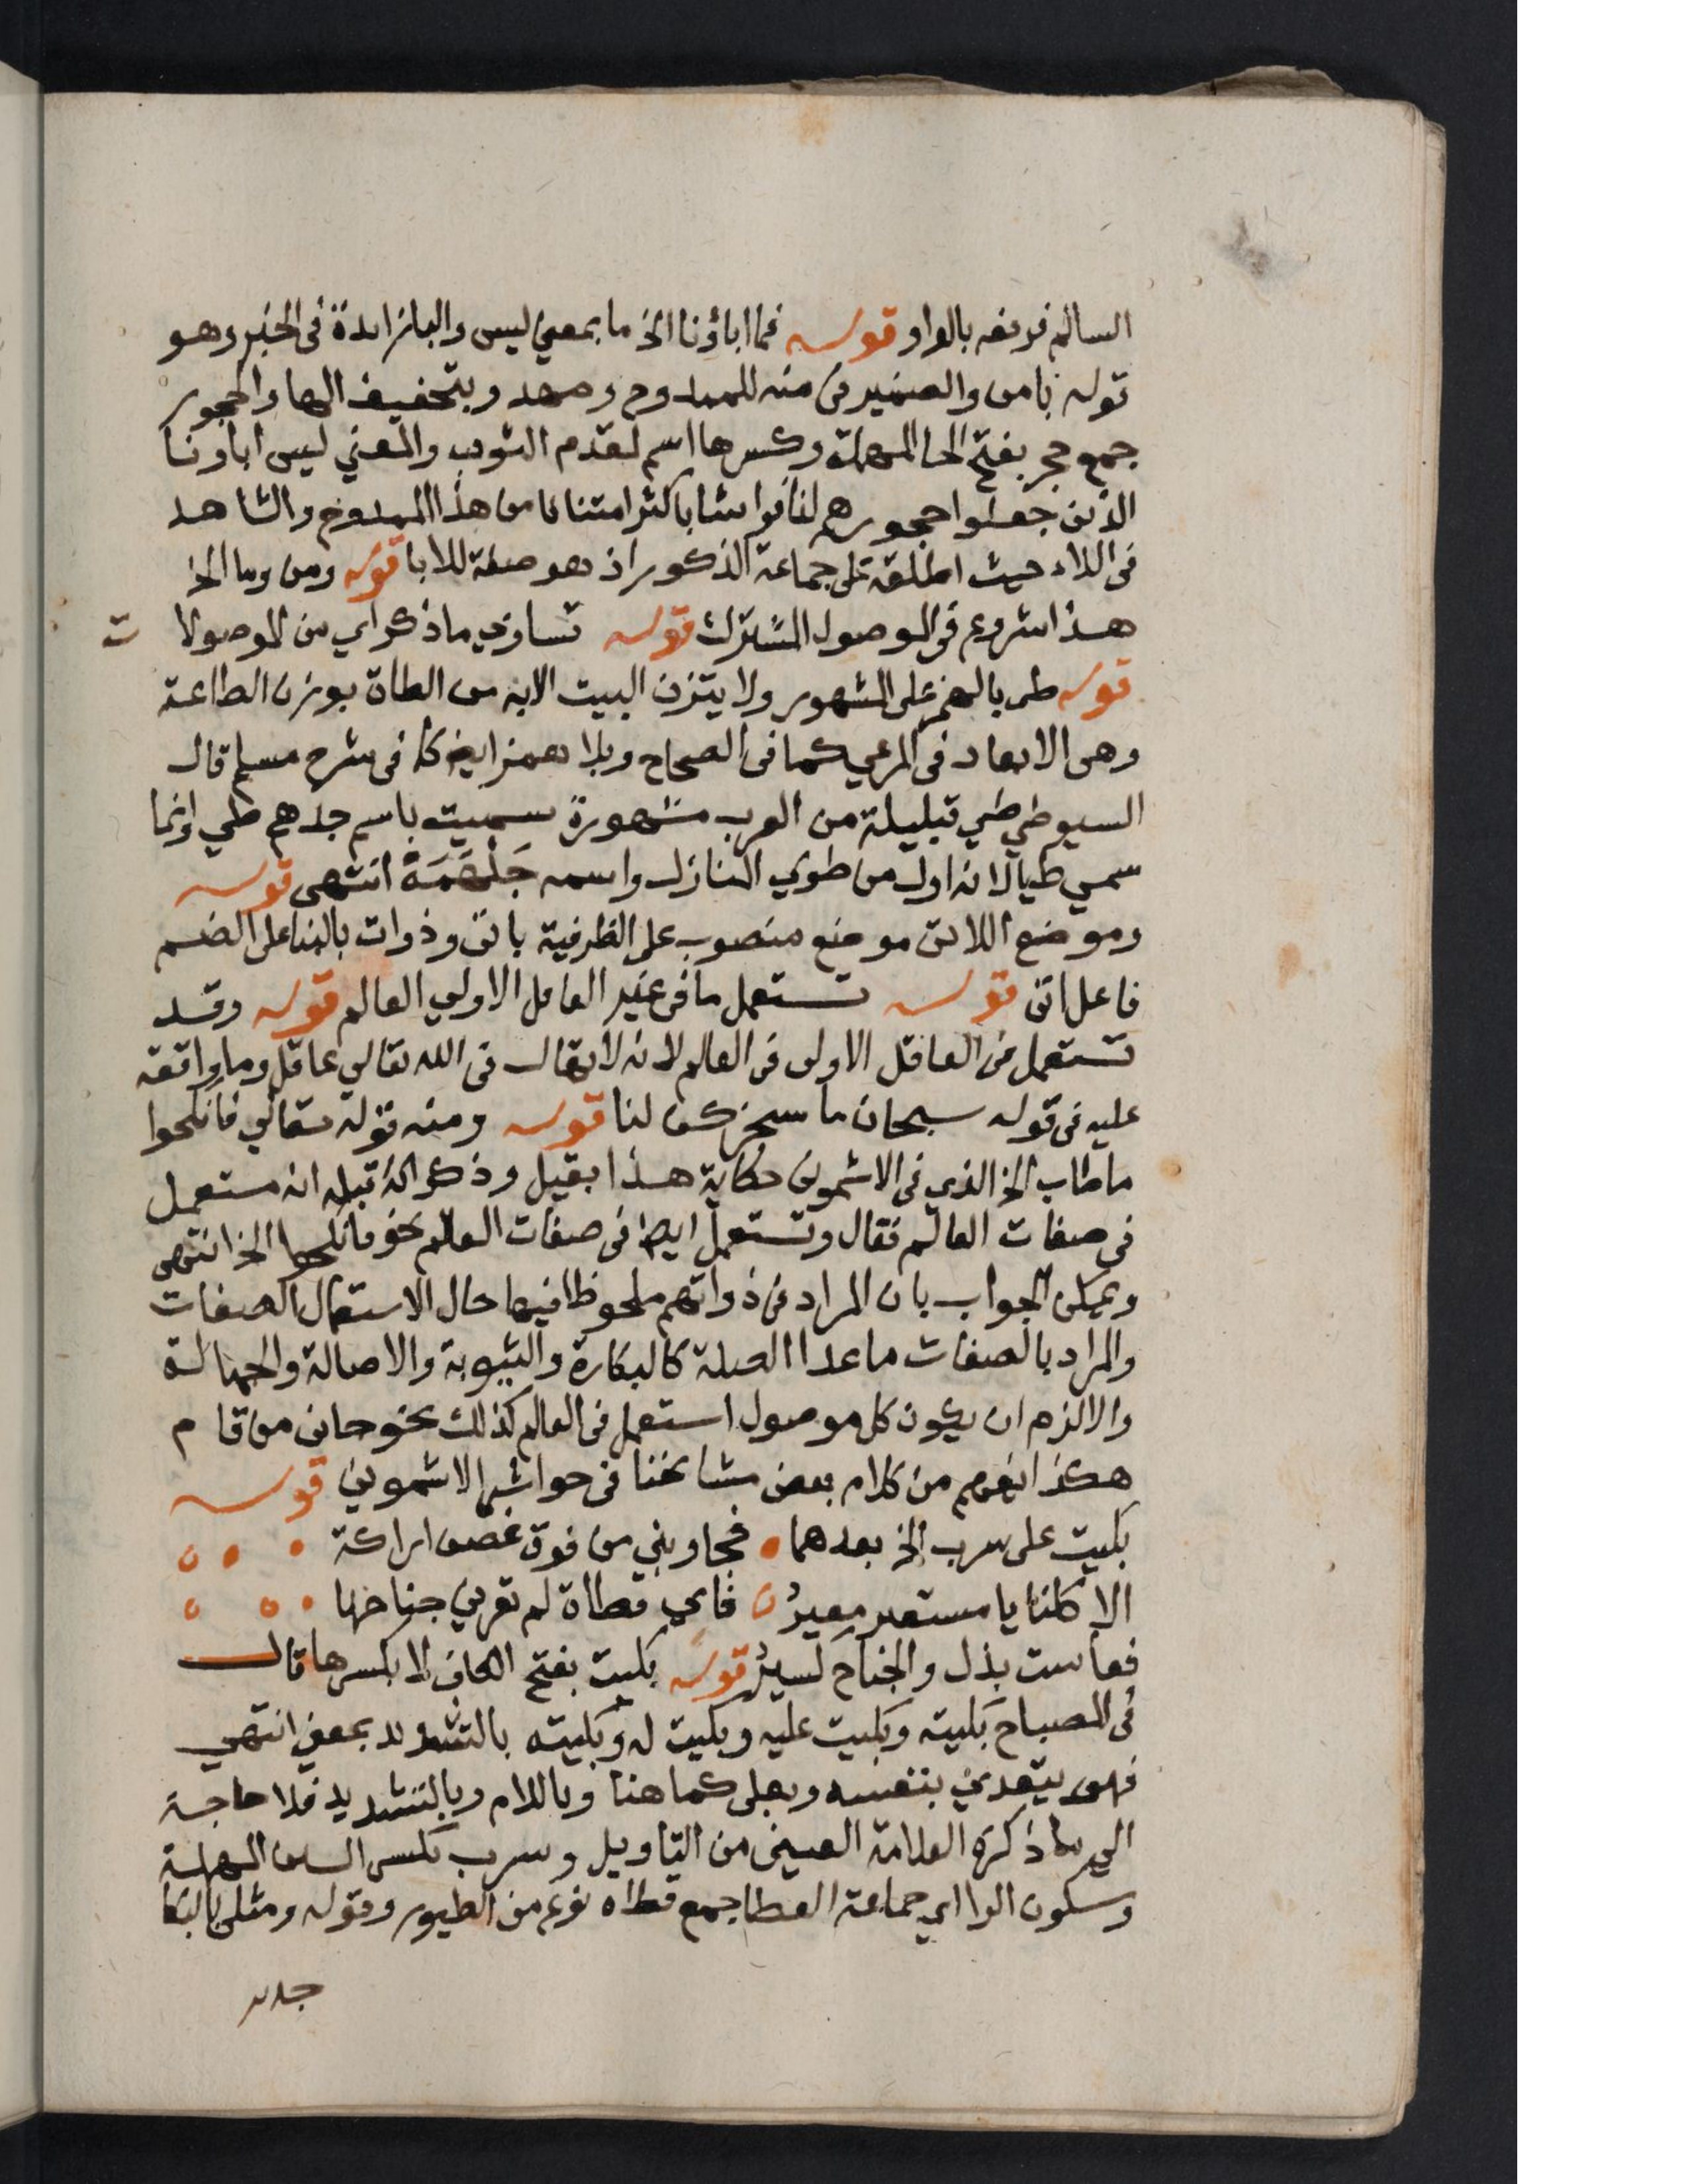 السالم فرفعه بالواو قوله فما اباؤنا الخ ما بمعني ليس والبا زائدة في الخبر وهو
قوله بامن والضمير في منه للممدوح ومهد وبتخفيف الها والحجور
جمع حجر بفتح الحا المهملة وكسرها اسم لمقدم الثوب والمعني ليس اباونا
الذين جعلوا حجورهم لنا فراشا باكثر امتنانا من هذا الممدوح والشاهد
في اللاء حيث اطلقه على جماعة الذكور اذ هو صفة للابا قوله ومن وما الخ
هذا شروع في الموصول المشترك قوله تساوي ما ذكر اي من الموصولا ت
قوله طى بالهمز على المشهور ولا يتزن البيت الا به من الطاة بوزن الطاعة
وهي الابعاد في المرعي كما في الصحاح وبلا همز ايضا كما في شرح مسلم قال
السيوطي طي قبليلة من العرب مشهورة سميت باسم جدهم طي وانما
سمي طيا لانه اول من طوي المنازل واسمه جَلْهَمَة انتهى قوله
وموضع اللاتي موضع منصوب على الظرفية باتى وذوات بالبنا على الضم
فاعل اتى قوله تستعمل ما في غير العاقل الاولي العالم قوله وقد
تستعمل في العاقل الاولى في العالم لانه لا يقال في الله تعالي عاقل وما واقعة
عليه في قوله سبحان ما سخركن لنا قوله ومنه قوله تعالي فانكحوا
ما طاب الخ الذي في الاشموني حكاية هذا بقيل وذكر انه قبله انه مستعمل
في صفات العالم فقال وتستعمل ايضا في صفات العالم نحو فانكحوا الخ انتهى
ويمكن الجواب بان المراد في ذواتهم ملحوظا فيها حال الاستعمال الصفات
والمراد بالصفات ما عدا الصلة كالبكارة والثيوبة والاصالة والجمالة
والا لزم ان يكون كل موصول استعمل في العالم كذلك نحو جاني من قام
هكذا يفهم من كلام بعض مشايخنا في حواشي الاشموني قوله
بكيت على سرب الخ بعدهما فجاوبني من فوق غصن اراكة
الا كلنا يا مستعير معيرُ فاي قطاة لم تعرني جناحها
فعاست بذل والجناح كسيرُ قوله بكيت بفتح الكاف لا بكسرها قال
في المصباح بَكيته وبكيت عليه وبكيت له وبكّيته بالتشديد بمعني انتهي
فهو يتعدي بنفسه وبعلى كما هنا وباللام وبالتشديد فلا حاجة
الي ما ذكره العلامة العيني من التاويل وسرب بكسر السين المهملة
وسكون الرا اي جماعة القطا جمع قطاه نوع من الطيور وقوله ومثلي بالبكا
جدير